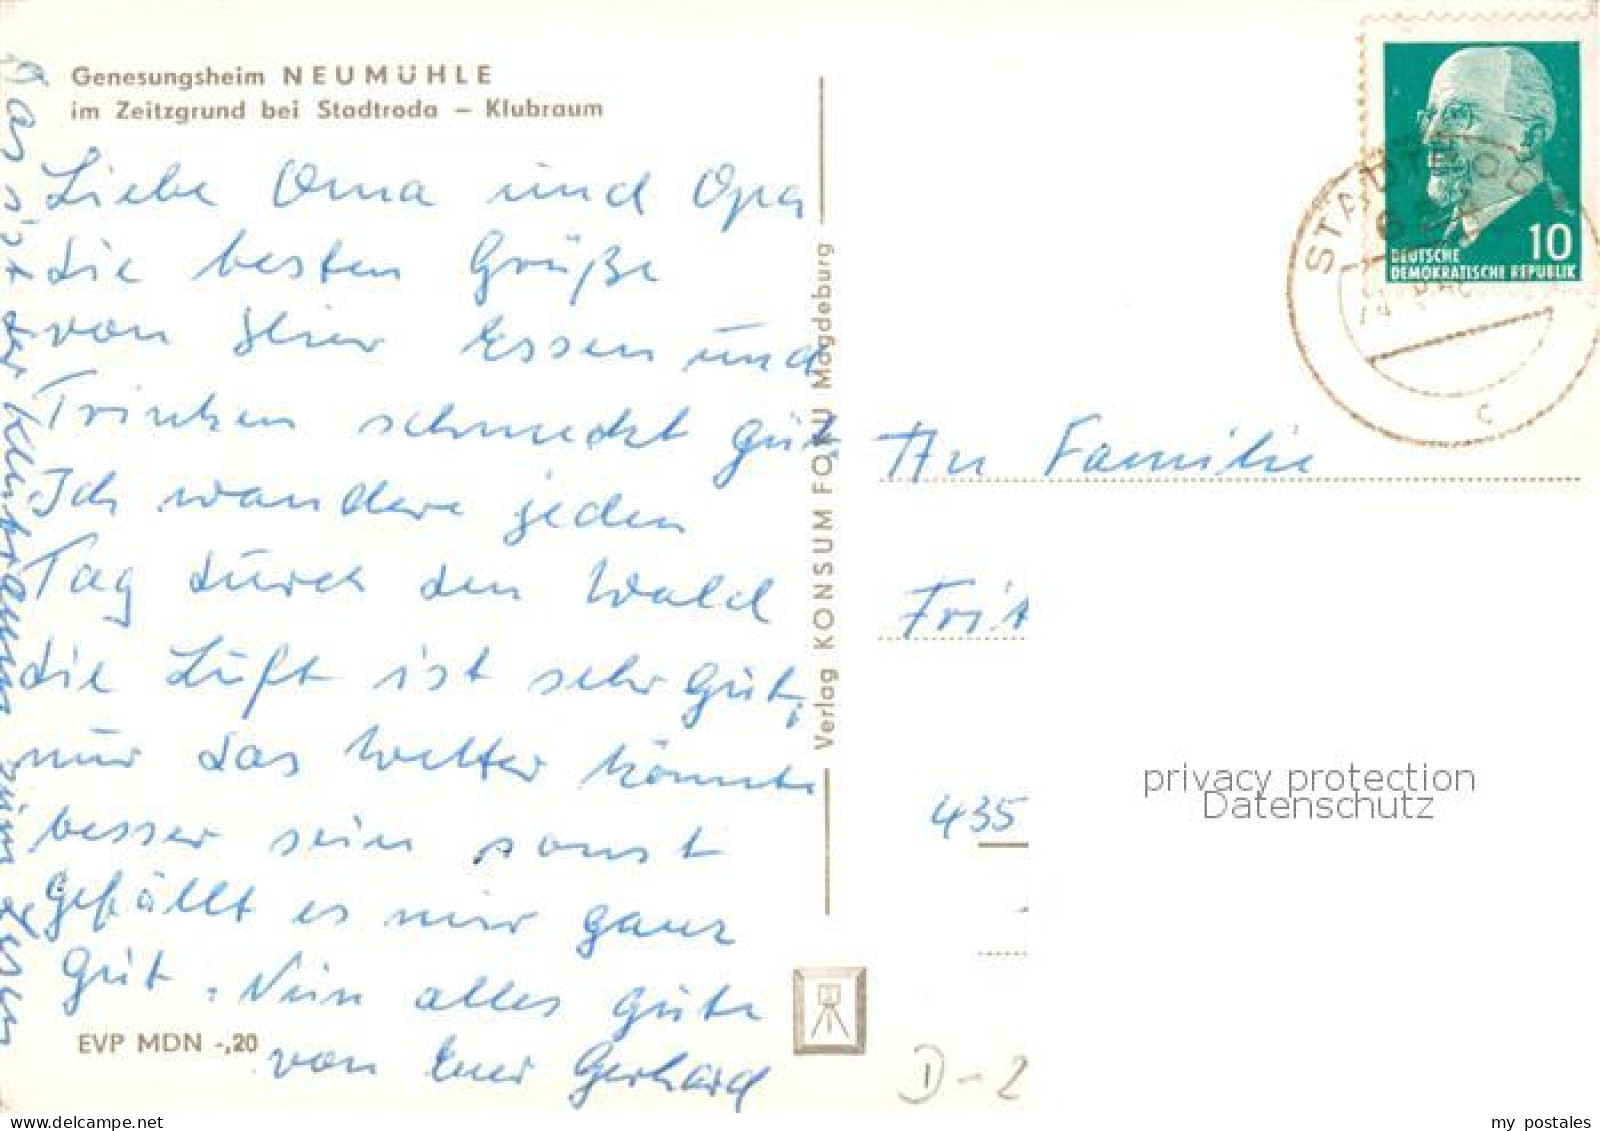 Genesungsheim NEUMÜHLE
im Zeitzgrund bei Stadtroda – Klubraum
Liebe Oma und Opa
die besten Grüße
von hier Essen und
Trinken schmeckt gut
Ich wandere jeden
Tag durch den Wald
die Luft ist sehr gut,
nur das Wetter könnte
besser sein sonst
gefällt es mir ganz
gut. Nun alles gute
von Euer Gerhard
EVP MDN -,20
Das ist der Klubraum zum Lesen
Verlag KONSUM FOTO Magdeburg
STADTRODA
DEUTSCHE
DEMOKRATISCHE REPUBLIK
10
c
An Familie
Frit
435
privacy protection
Datenschutz
D-2
my postales